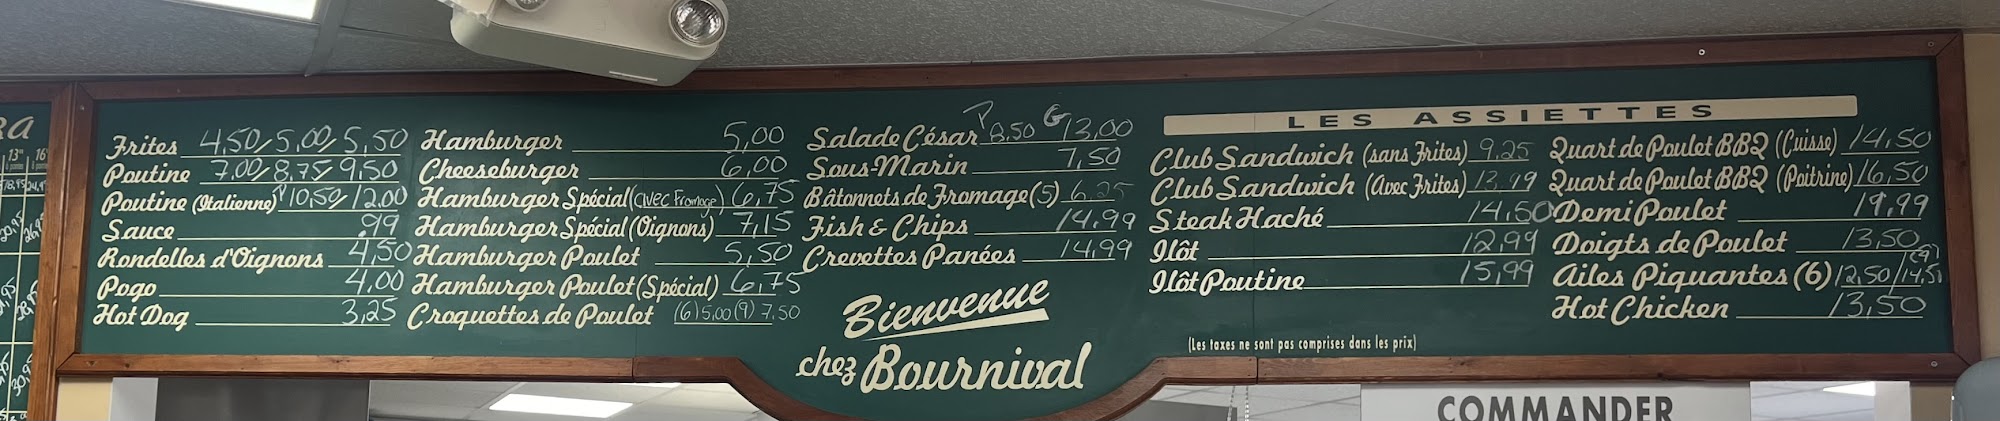 RA
13" 16"
18,95 24,95
Frites 4,50/5,00/5,50
Poutine 7,00/8,75/9,50
Poutine (Italienne) P 10,50/12,00
Sauce .99
Rondelles d'Oignons 4,50
Pogo 4,00
Hot Dog 3,25
Hamburger 5,00
Cheeseburger 6,00
Hamburger Spécial (avec Fromage) 6,75
Hamburger Spécial (Oignons) 7,15
Hamburger Poulet 5,50
Hamburger Poulet (Spécial) 6,75
Croquettes de Poulet (6) 5,00 (9) 7,50
Salade César P 8,50 G 13,00
Sous-Marin 7,50
Bâtonnets de Fromage (5) 6.25
Fish & Chips 14,99
Crevettes Panées 14,99
Bienvenue
chez Bournival
LES ASSIETTES
Club Sandwich (sans Frites) 9,25
Club Sandwich (Avec Frites) 13,99
Steak Haché 14,50
Ilôt 12,99
Ilôt Poutine 15,99
(Les taxes ne sont pas comprises dans les prix)
Quart de Poulet BBQ (Cuisse) 14,50
Quart de Poulet BBQ (Poitrine) 16,50
Demi Poulet 19,99
Doigts de Poulet 13,50
Ailes Piquantes (6) 12,50/14,50 (9)
Hot Chicken 13,50
COMMANDER